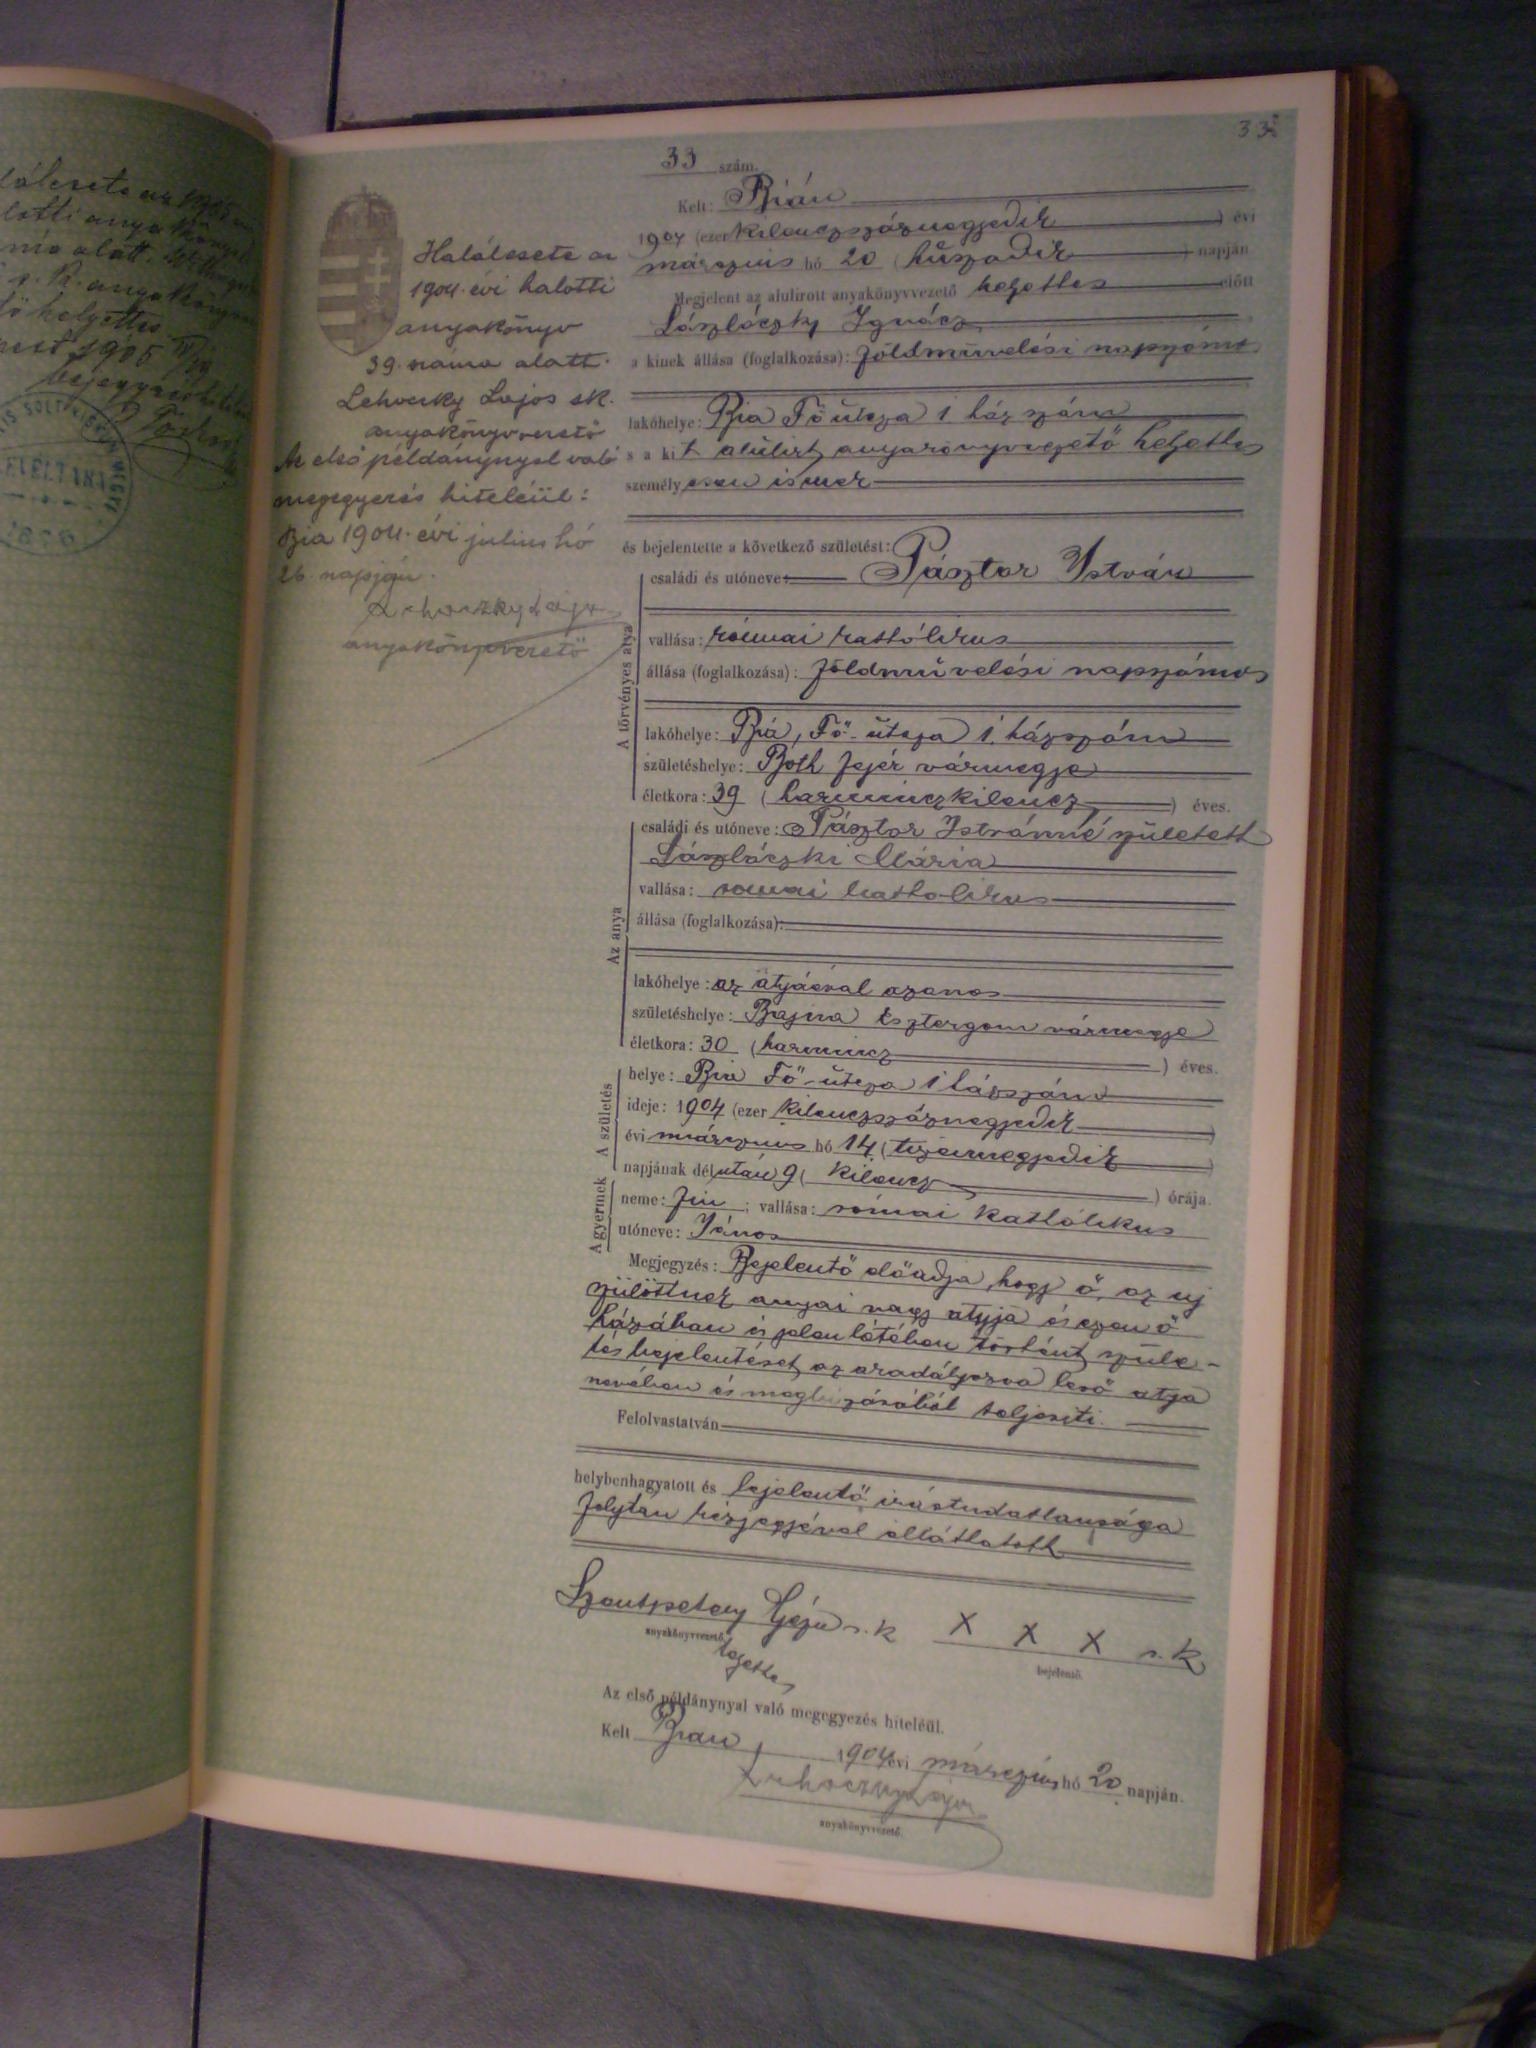 33
33 szám.
Kelt: Bián
1904 (ezer kilenczszáznegyedik) évi
márczius hó 20 (huszadik) napján
Megjelent az alulirott anyakönyvvezető helyettes előtt
Lászlóczky Ignácz
a kinek állása (foglalkozása): földmüvelési napszámos
lakóhelye: Bia Fő utcza 1 házszám
s a kit alulirt anyakönyvvezető helyettes
személyesen ismer
és bejelentette a következő születést:
A törvényes atya
családi és utóneve: Pásztor István
vallása: római katólikus
állása (foglalkozása): földmüvelési napszámos
lakóhelye: Bia, Fő-utcza 1. házszám
születéshelye: Both fejér vármegye
életkora: 39 (harminczkilencz) éves.
Az anya
családi és utóneve: Pásztor Istvánné született
Lászlóczki Mária
vallása: romai katholikus
állása (foglalkozása):
lakóhelye: az atyáéval azonos
születéshelye: Bajna Esztergom vármegye
életkora: 30 (harmincz) éves.
A születés
helye: Bia Fő-utcza 1 házszám
ideje: 1904 (ezer kilenczszáznegyedik)
évi márczius hó 14 (tizennegyedik)
napjának délután 9 (kilencz) órája.
A gyermek
neme: fiu; vallása: római katólikus
utóneve: János
Megjegyzés: Bejelentő előadja, hogy ő, az uj
szülöttnek anyai nagy atyja és ezen ő
házában és jelenlétében történt szüle-
tés bejelentését az akadályozva levő atya
nevében és megbizásából teljesiti.
Felolvastatván
helybenhagyatott és bejelentő irástudatlansága
folytán kézjegyével elláttatott
Szentpetery Géza s. k X X X s. k
anyakönyvvezető helyettes bejelentő.
Az első példánynyal való megegyezés hiteléül.
Kelt Bian, 1904 évi márczius hó 20 napján.
Lehoczky Lajos
anyakönyvvezető.
Halálesete az
1904. évi halotti
anyakönyv
39. száma alatt.
Lehoczky Lajos sk.
anyakönyvvezető
Az első példánynyal való
megegyezés hiteléül:
Bia 1904. évi julius hó
26. napján.
Lehoczky Lajos
anyakönyvvezető